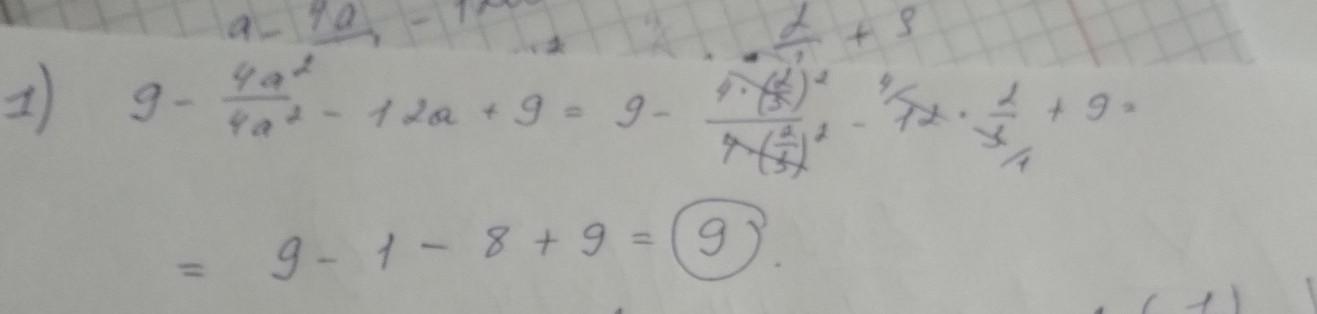 a - 4a - 12
2 + 9
1) 9 - 4a²/4a² - 12a + 9 = 9 - 4·(2/3)²/4·(2/3)² - 12 · 2/3 + 9 =
= 9 - 1 - 8 + 9 = 9.